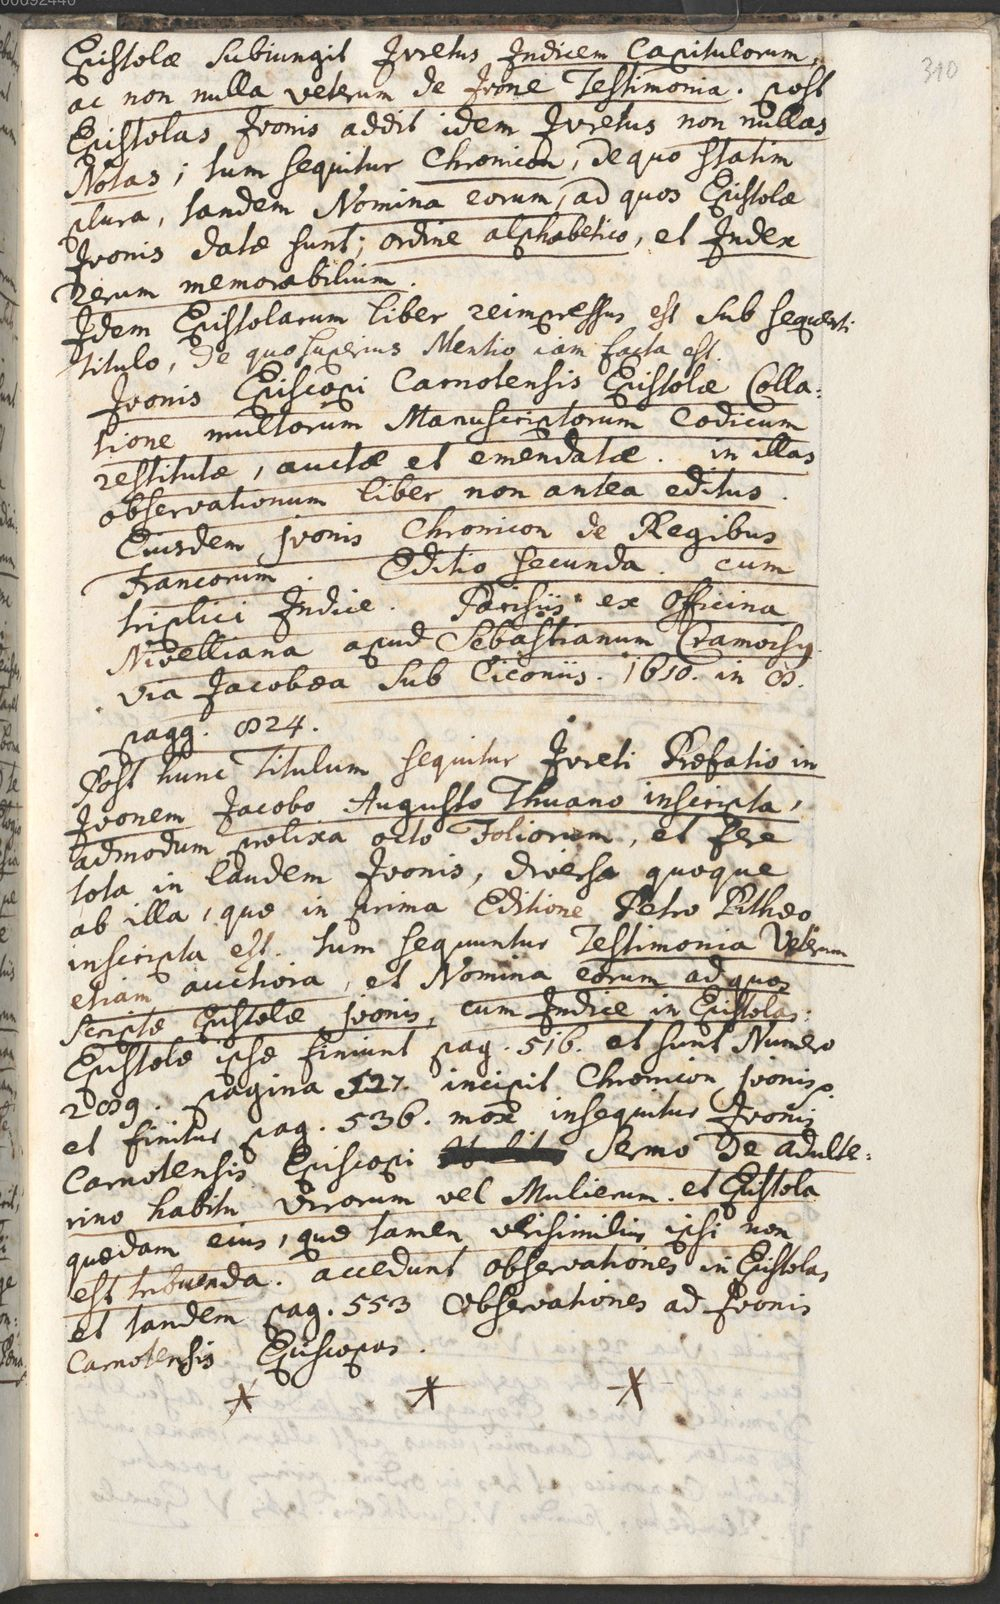 310
Epistolæ subiungit Juretus Indicem Capitulorum,
ac non nulla veterum de Jvone Testimonia. post
Epistolas Jvonis addit idem Juretus non nullas
Notas; tum sequitur Chronicon, de quo statim
plura, tandem Nomina eorum, ad quos Epistolæ
Jvonis datæ sunt; ordine alphabetico, et Index
rerum memorabilium.
Idem Epistolarum liber reimpressus est sub sequenti
titulo, de quo superius Mentio iam facta est.
Jvonis Episcopi Carnotensis Epistolæ Colla:
tione multorum Manuscriptorum Codicum
restitutæ, auctæ et emendatæ. in illas
observationum liber non antea editus.
Eiusdem jvonis Chronicon de Regibus
Francorum. Editio secunda. cum
triplici Indice. Parisiis ex Officina
Nivelliana apud Sebastianum Cramoisy.
via Jacobæa sub Ciconiis. 1610. in 8.
pagg. 824.
Post hunc Titulum sequitur Jureti Præfatio in
Jvonem Jacobo Augusto Thuano inscripta,
admodum prolixa octo Foliorum, et fere
tota in laudem Jvonis, diversa quoque
ab illa, quæ in prima Editione Petro Pithæo
inscripta est. tum sequuntur Testimonia Veterum
etiam auctiora, et Nomina eorum ad quos
scriptæ Epistolæ jvonis, cum Indice in Epistolas:
Epistolæ ipsæ finiunt pag. 516. et sunt Numero
289. pagina 527. incipit Chronicon jvonis
et finitur pag. 536. mox insequitur Jvonis
Carnotensis Episcopi Sermo de adulte:
rino habitu Virorum vel Mulierum. et Epistola
quædam eius, quæ tamen verisimilius ipsi non
est tribuenda. accedunt observationes in Epistolas
et tandem pag. 553 Observationes ad Jvonis
Carnotensis Episcopos.